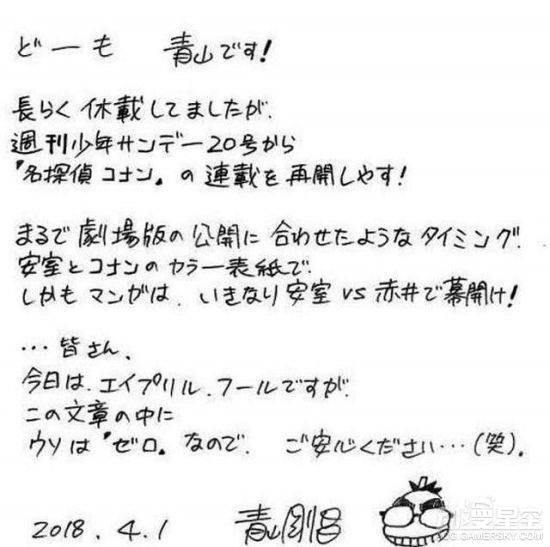 どーも 青山です!
長らく休載してましたが、
週刊少年サンデー20号から
『名探偵コナン』の連載を再開しやす!
まるで劇場版の公開に合わせたようなタイミング。
安室とコナンのカラー表紙で、
しかもマンガは、いきなり安室vs赤井で幕開け!
…皆さん、
今日は、エイプリル、フールですが、
この文章の中に
ウソは『ゼロ』なので、ご安心ください…(笑)。
2018.4.1 青山剛昌
動漫星空
ACG.GAMERSKY.COM